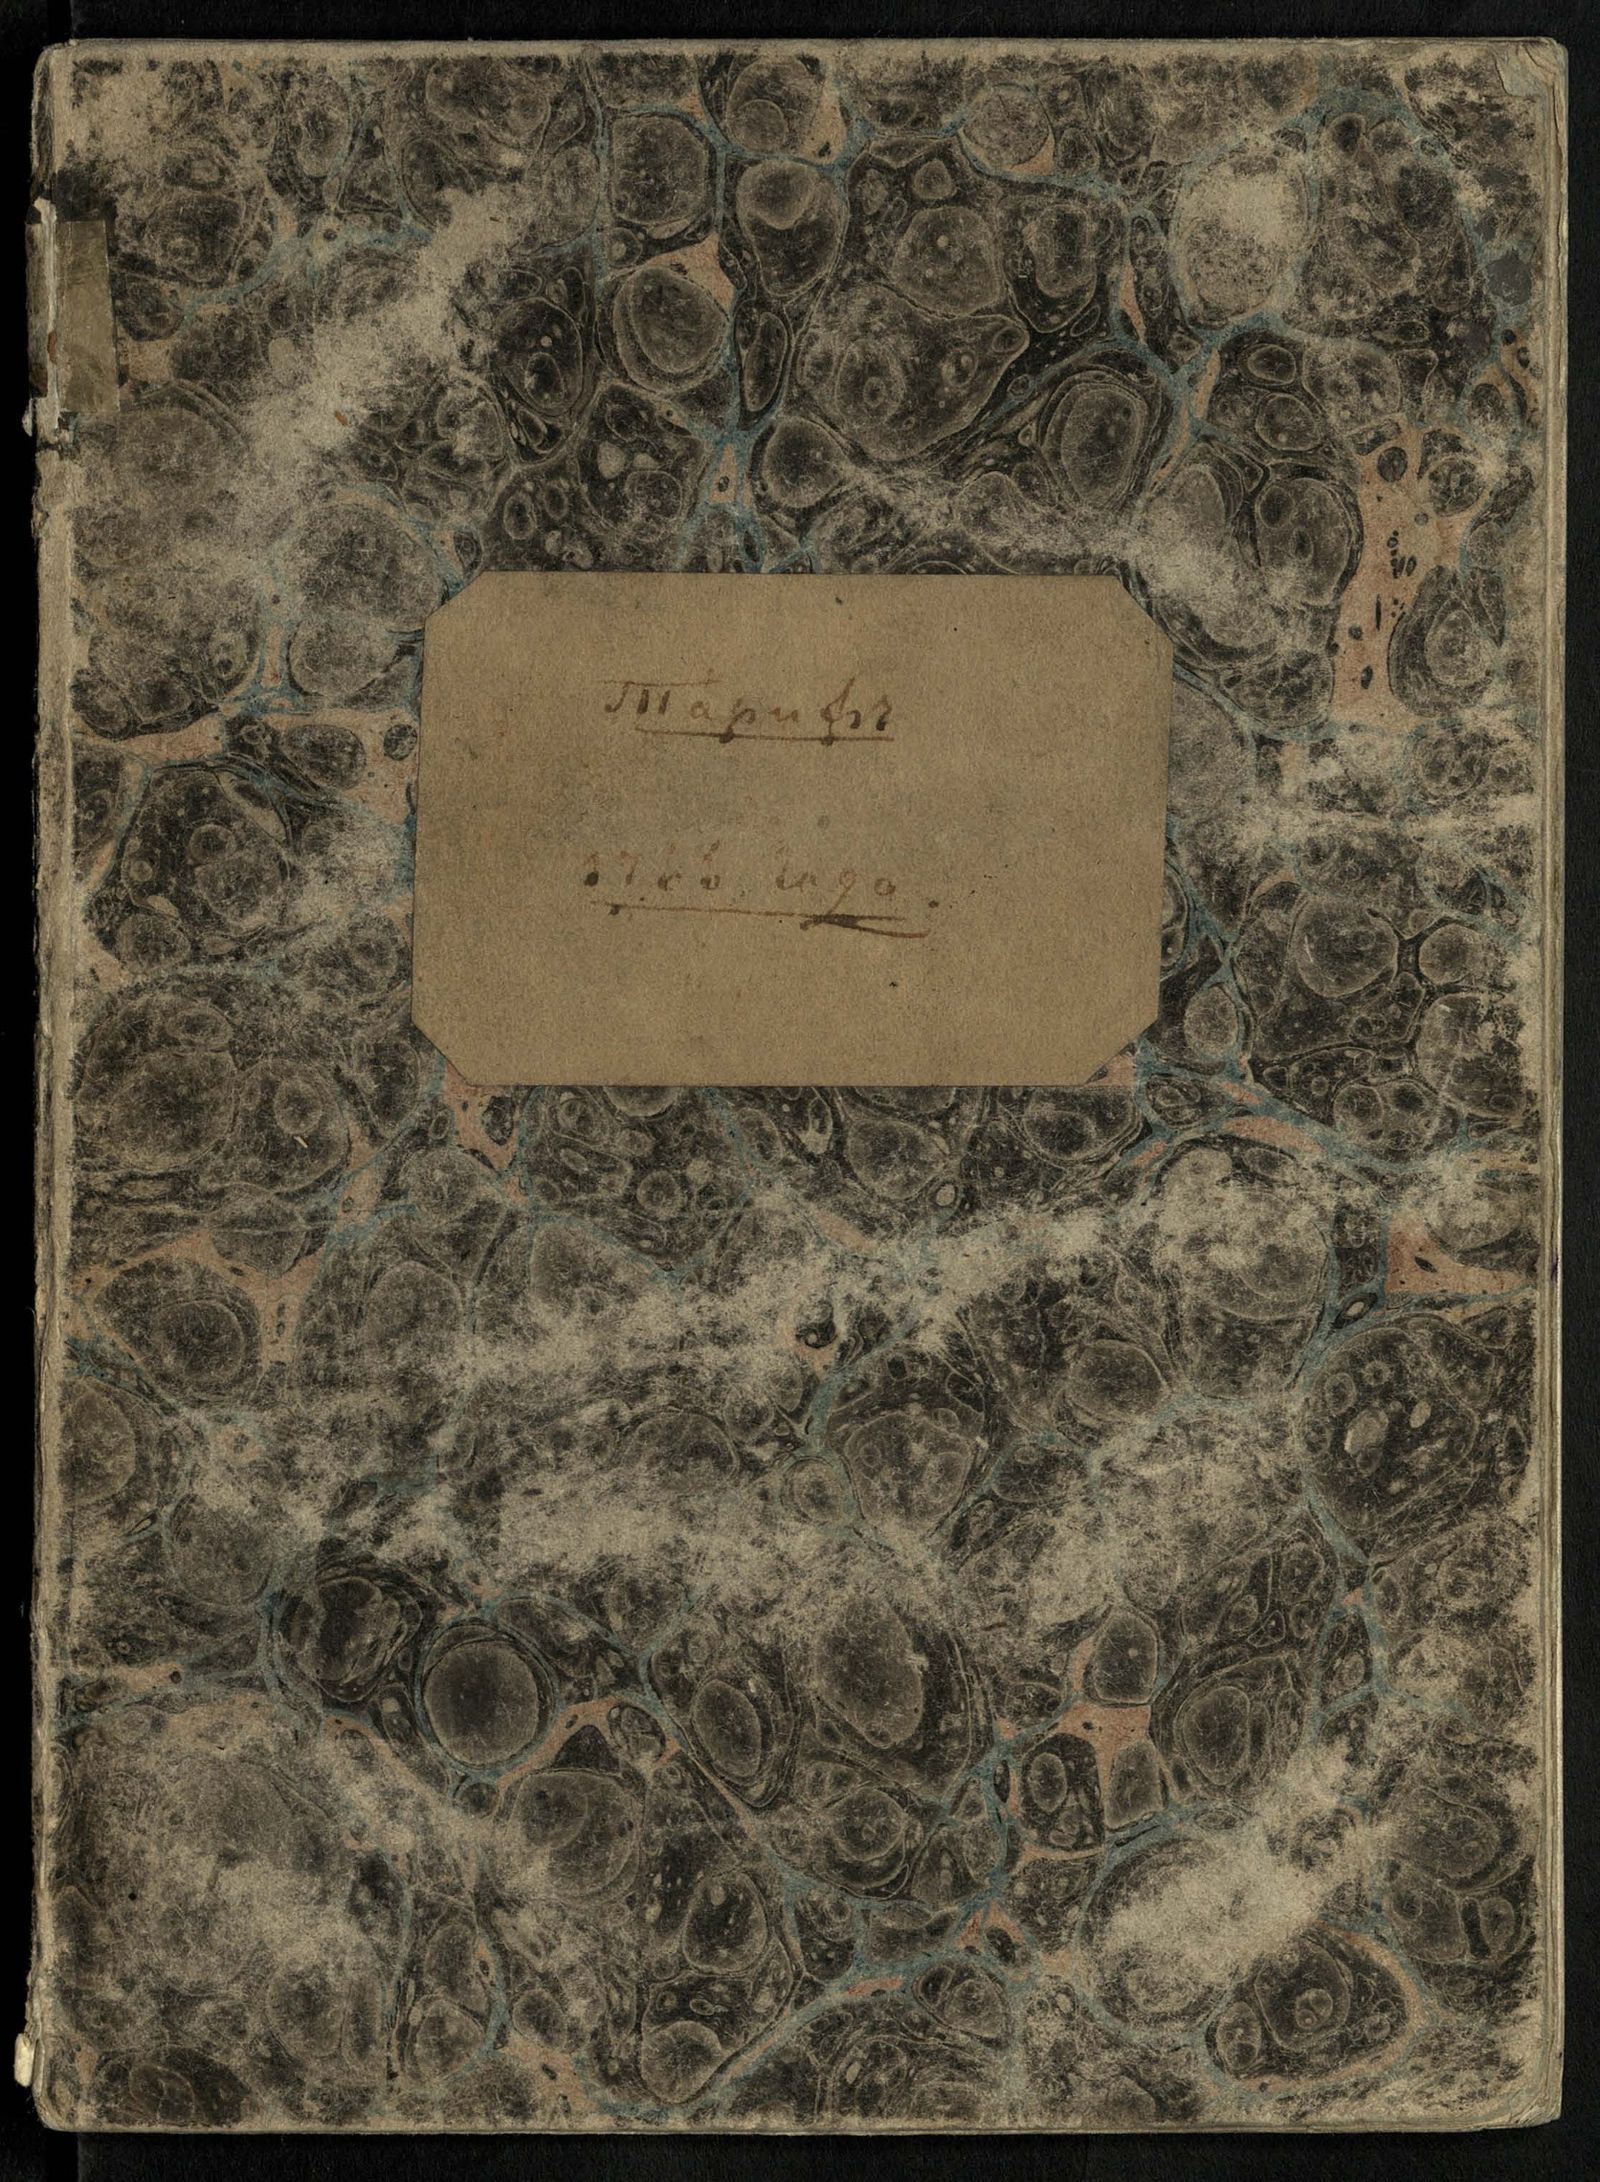 Тарифъ
1766 года.